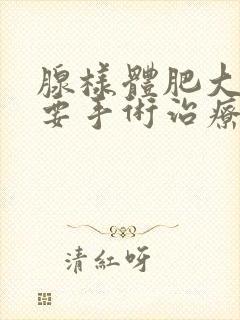 腺樣體肥大
要手術治療
清紅呀